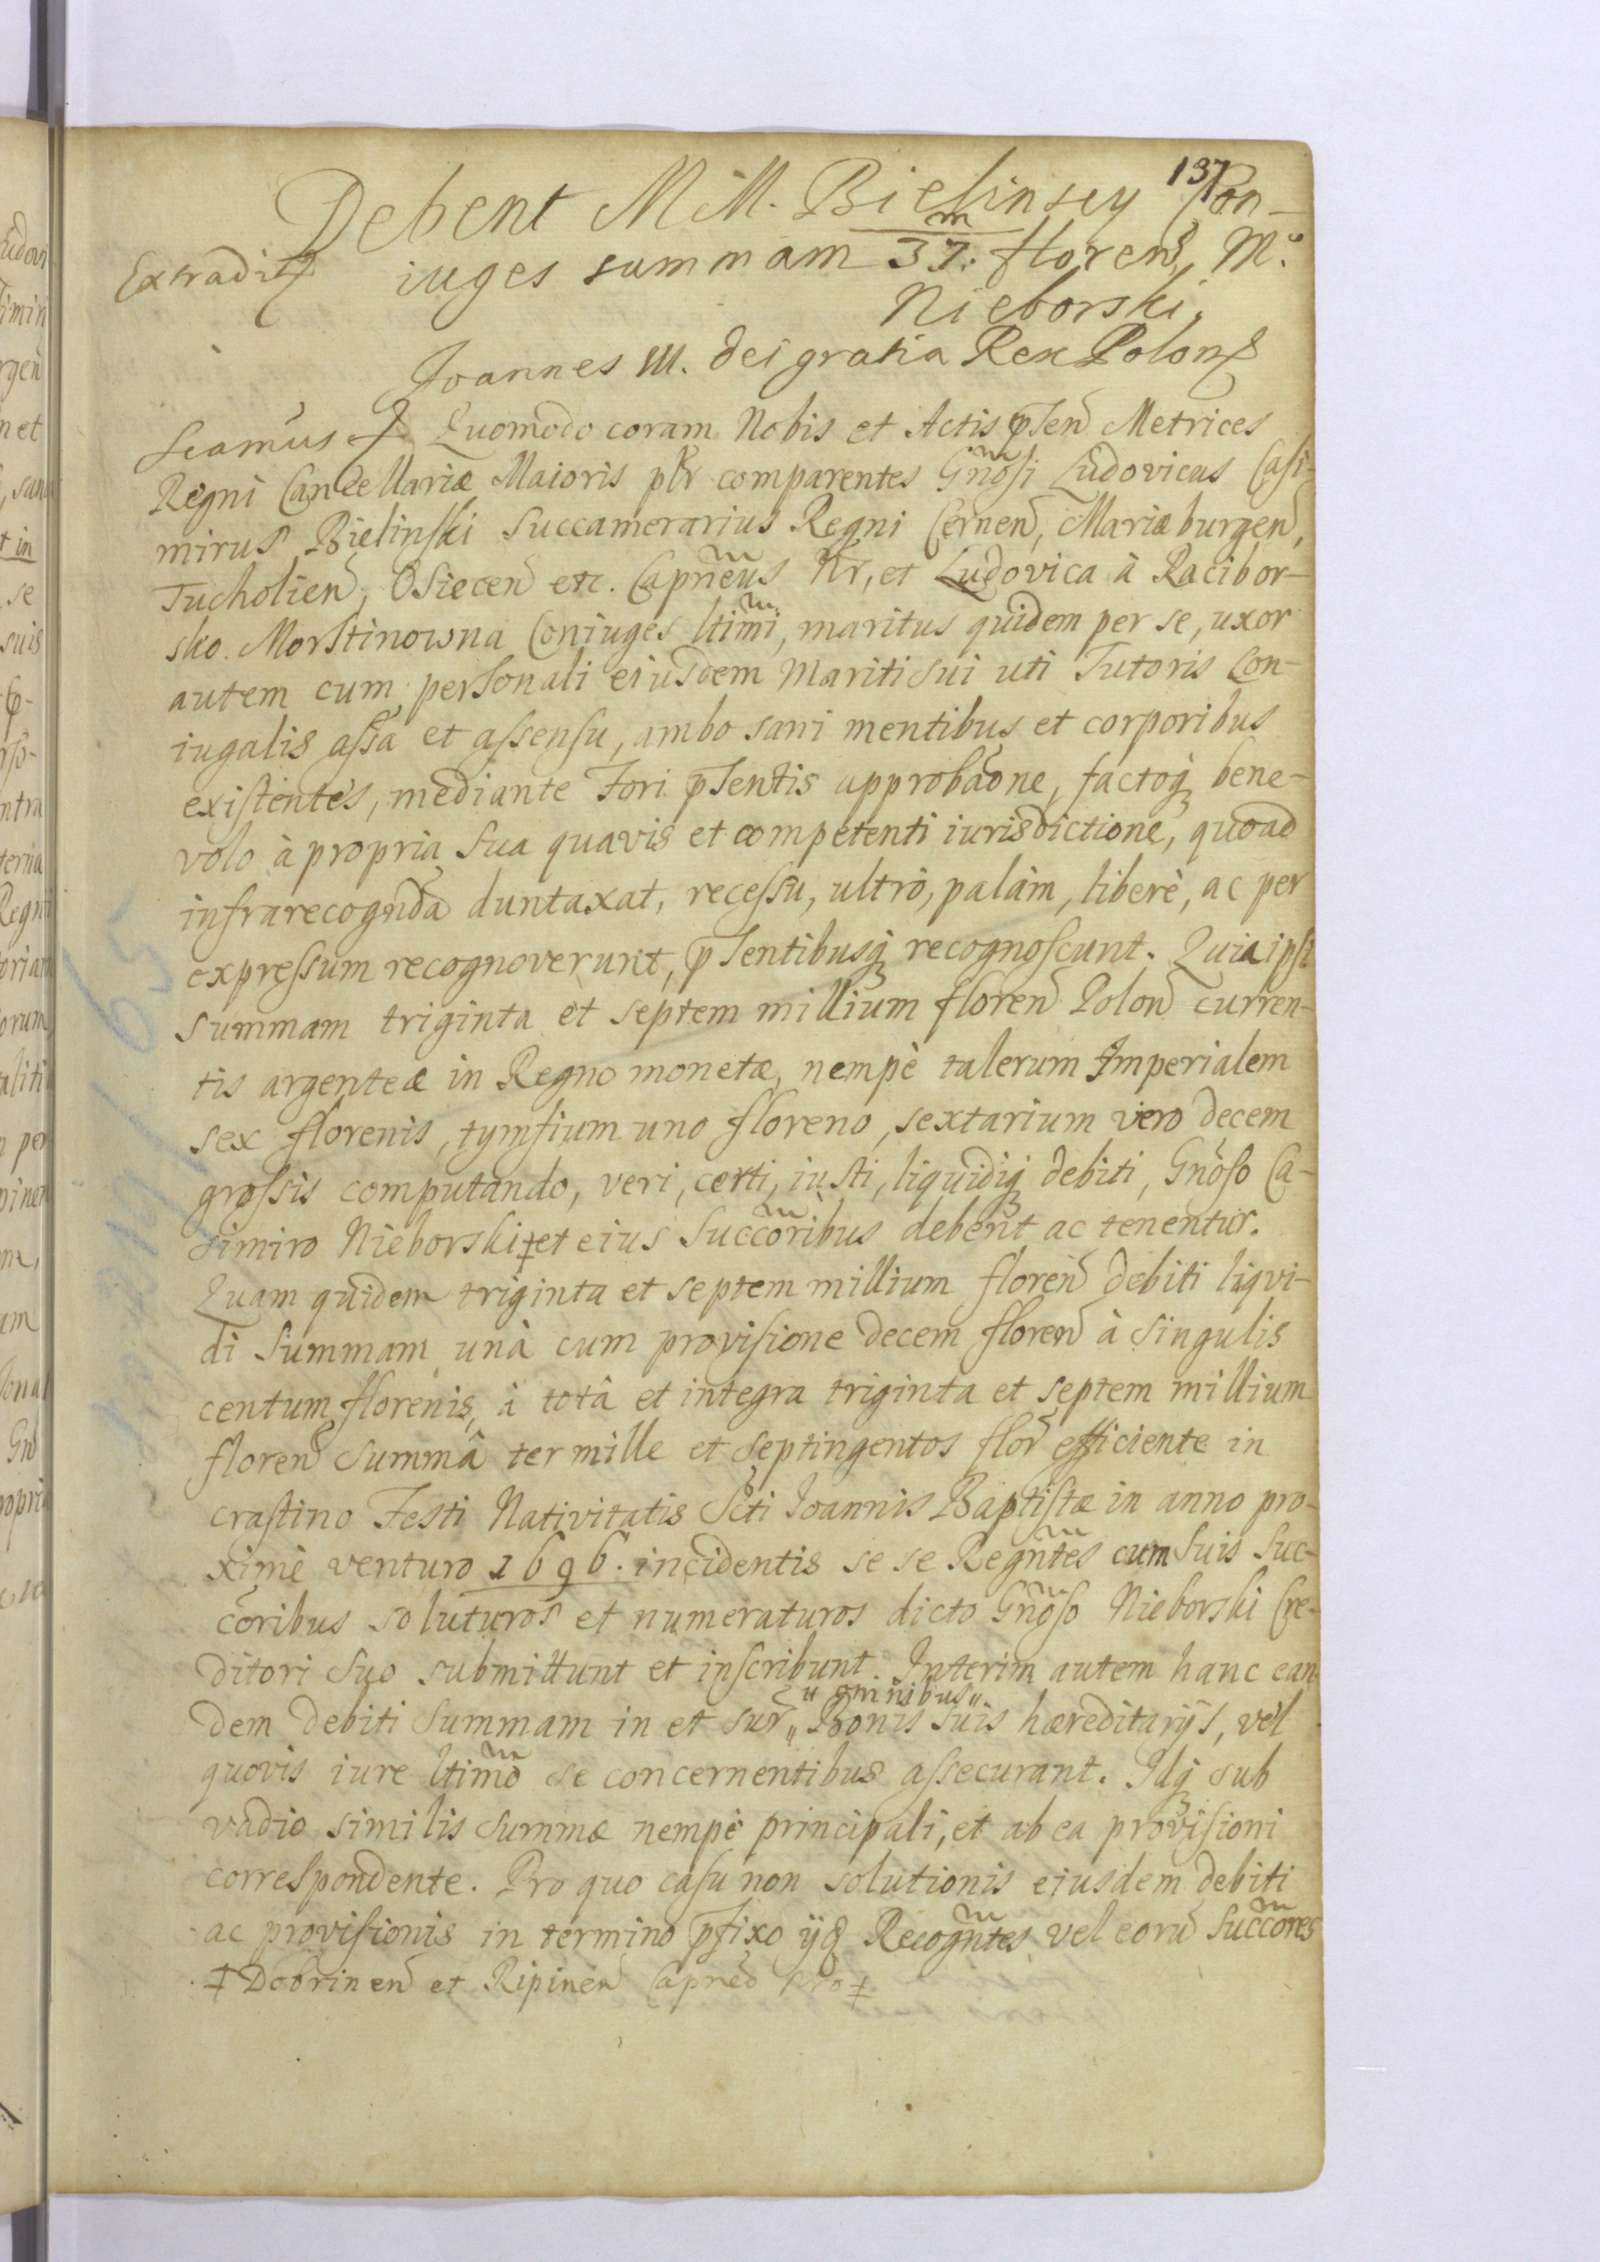 137
Debent MM. Bielinscy Con-
Extradit
iuges summam 37. m floren, Mco
Nieborski.
Joannes III. Dei gratia Rex Polon
Scamus Quomodo coram Nobis et Actis pnten Metrices
Regni Cancellariæ Maioris plr comparentes Gnosi Ludovicus Casi-
mirus Bielinski Succamerarius Regni Cernen, Mariæburgen,
Tucholien, Osiecen etc. Capneus Nr, et Ludovica à Racibor-
sko Morstinowna Coniuges ltimi, maritus quidem per se, uxor
autem cum personali eiusdem Mariti sui uti Tutoris Con-
iugalis assa et assensu, ambo sani mentibus et corporibus
existentes, mediante Fori pntentis approbaone, factoq bene-
volo à propria sua quavis et competenti iurisdictione, quoad
infrarecognda duntaxat, recessu, ultrò, palàm, liberè, ac per
expressum recognoverunt, psentibusq recognoscunt. Quia ipsi
summam triginta et septem millium floren Polon curren-
tis argenteæ in Regno monetæ, nempè talerum Imperialem
sex florenis, tymfium uno floreno, sextarium vero decem
grossis computando, veri, certi, iusti, liquidiq debiti, Gnoso Ca-
simiro Nieborski ‡ et eius Succoribus debent ac tenentur.
Quam quidem triginta et septem millium floren debiti liqvi-
di Summam unà cum provisione decem floren à singulis
centum florenis, à totâ et integra triginta et septem millium
floren summâ ter mille et septingentos flor efficiente in
crastino Festi Nativitatis Scti Joannis Baptistæ in anno pro-
ximè venturo 1696. incidentis se se Regntes cum suis Suc-
coribus soluturos et numeraturos dicto Gnoso Nieborski Cre-
ditori suo submittunt et inscribunt. Interim autem hanc ean-
" omnibus "
dem debiti Summam in et sur " Bonis suis hæreditarijs, vel
quovis iure ltimo se concernentibus assecurant. Idq sub
vadio similis summæ nempè principali, et ab ea provisioni
correspondente. Pro quo casu non solutionis eiusdem debiti
ac provisionis in termino pfixo ijd Recogntes vel eoru Succores
‡ Dobrinen et Ripinen Capneo Nro ‡